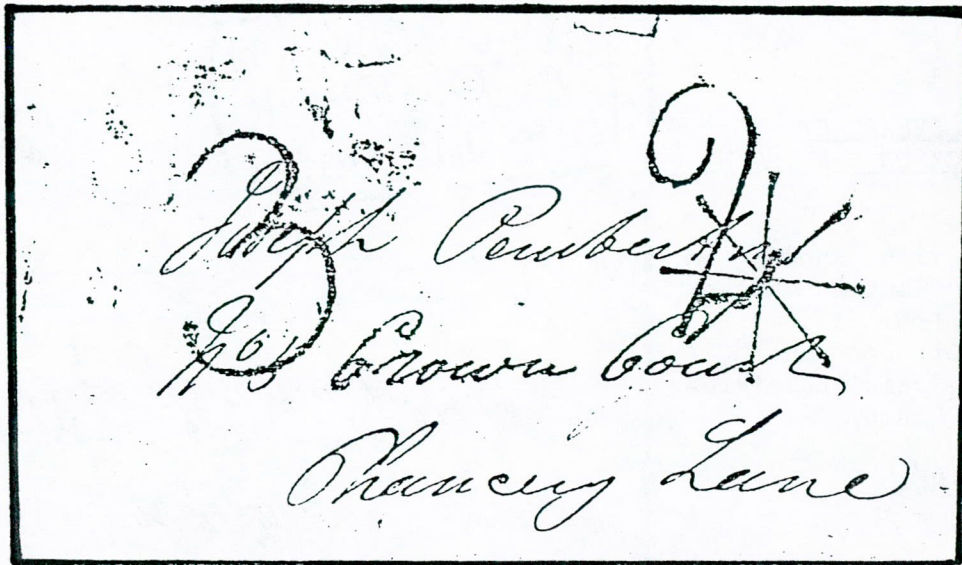 3
2
Joseph Pemberton
No 5 Crown Court
Chancery Lane